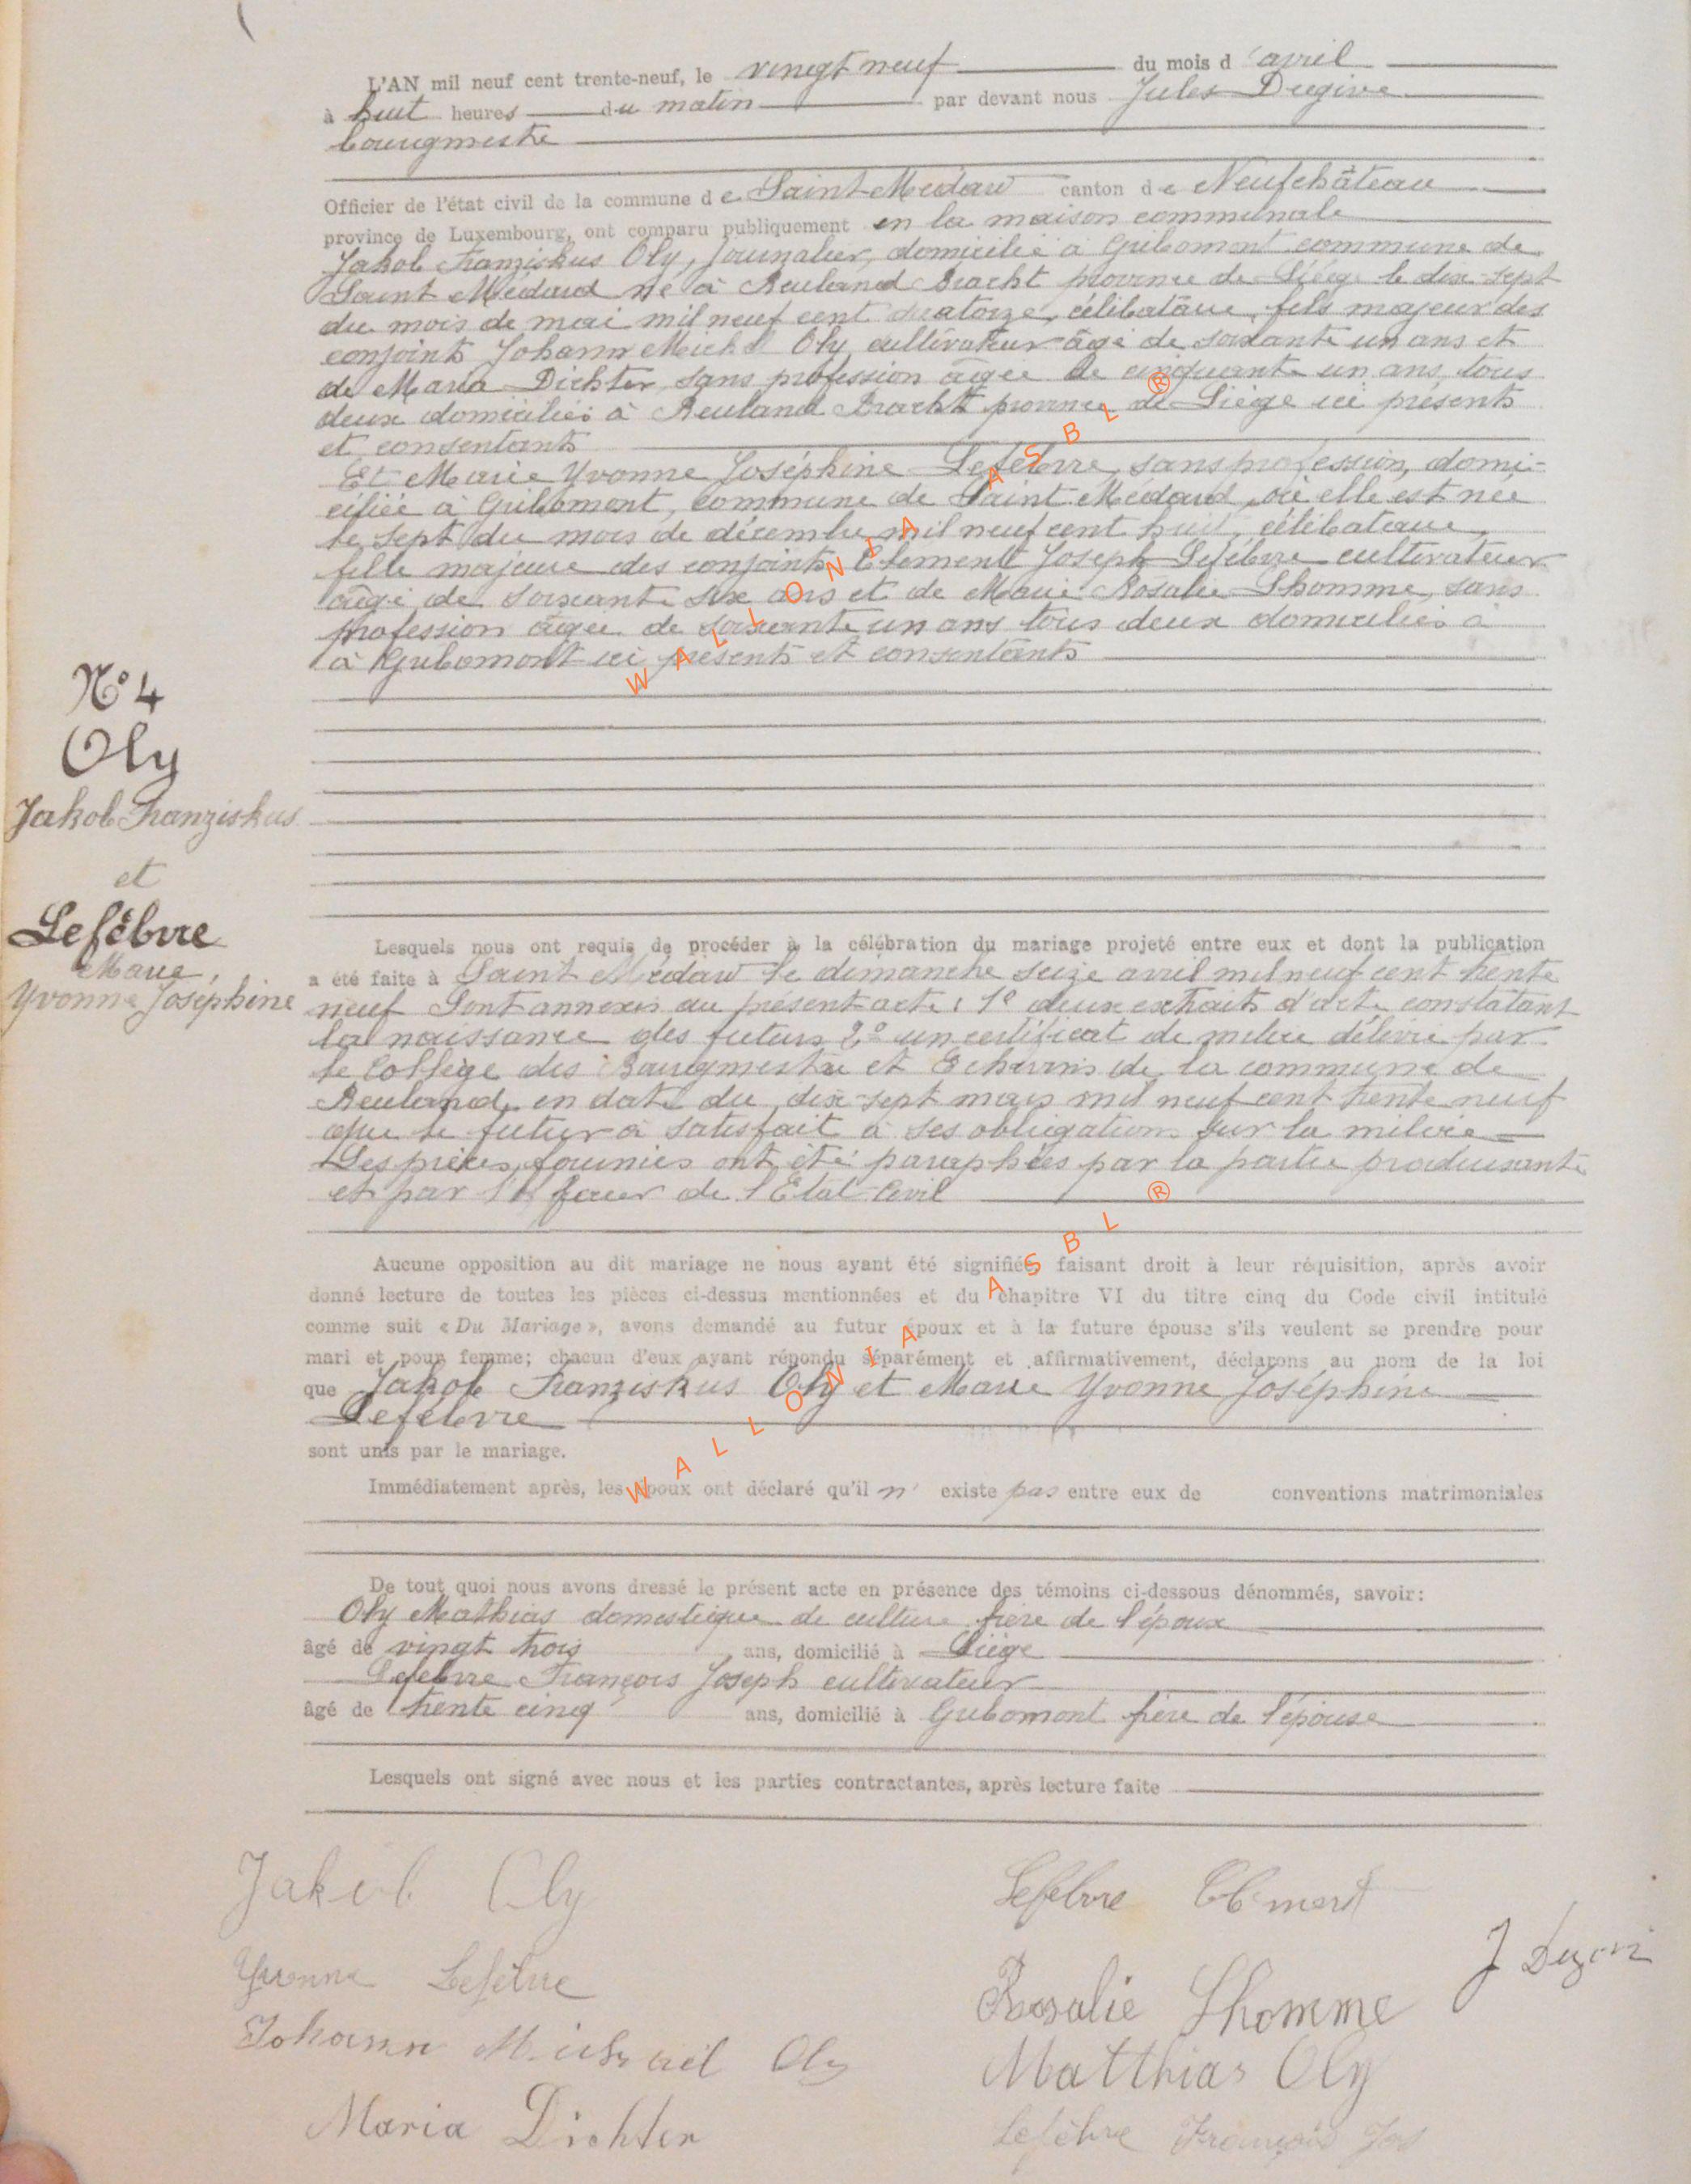 L'AN mil neuf cent trente-neuf, le vingt neuf du mois d'avril
à huit heures du matin par devant nous Jules Dugive
bourgmestre
Officier de l'état civil de la commune de Saint-Médard canton de Neufchâteau
province de Luxembourg, ont comparu publiquement en la maison communale
Jakob Franziskus Oly, journalier, domicilié à Gribomont commune de
Saint Médard né à Reuland Bracht province de Liège le dix-sept
du mois de mai mil neuf cent quatorze, célibataire, fils majeur des
conjoints Johann Michel Oly, cultivateur âgé de soixante un ans et
de Maria Dichter, sans profession âgée de cinquante un ans, tous
deux domiciliés à Reuland Bracht province de Liège ici présents
et consentants
Et Marie Yvonne Joséphine Lefèbvre, sans profession, domi-
ciliée à Gribomont, commune de Saint Médard, où elle est née
le sept du mois de décembre mil neuf cent huit, célibataire,
fille majeure des conjoints Clement Joseph Lefèbvre cultivateur
âgé de soixante six ans et de Marie Rosalie Lhomme, sans
profession âgée de soixante un ans tous deux domiciliés à
à Gribomont ici présents et consentants
N° 4
Oly
Jakob Franziskus
et
Lefèbvre
Marie,
Yvonne Joséphine
Lesquels nous ont requis de procéder à la célébration du mariage projeté entre eux et dont la publication
a été faite à Saint Médard le dimanche seize avril mil neuf cent trente
neuf Sont annexés au présent acte : 1° deux extraits d'acte constatant
la naissance des futurs 2° un certificat de milice délivré par
le Collège des Bourgmestre et Echevins de la commune de
Reuland, en date du dix-sept mars mil neuf cent trente neuf
que le futur a satisfait à ses obligations sur la milice
Les pièces fournies ont été paraphées par la partie produisante
et par l'officier de l'Etat-Civil
Aucune opposition au dit mariage ne nous ayant été signifiée, faisant droit à leur réquisition, après avoir
donné lecture de toutes les pièces ci-dessus mentionnées et du chapitre VI du titre cinq du Code civil intitulé
comme suit « Du Mariage », avons demandé au futur époux et à la future épouse s'ils veulent se prendre pour
mari et pour femme; chacun d'eux ayant répondu séparément et affirmativement, déclarons au nom de la loi
que Jakob Franziskus Oly et Marie Yvonne Joséphine
Lefèbvre
sont unis par le mariage.
Immédiatement après, les époux ont déclaré qu'il n' existe pas entre eux de conventions matrimoniales
De tout quoi nous avons dressé le présent acte en présence des témoins ci-dessous dénommés, savoir:
Oly Mathias domestique de culture frère de l'époux
âgé de vingt trois ans, domicilié à Liège
Lefebvre François Joseph cultivateur
âgé de trente cinq ans, domicilié à Gribomont frère de l'épouse
Lesquels ont signé avec nous et les parties contractantes, après lecture faite
Jakob Oly
Lefèbvre Clément
J Dugive
Yvonne Lefèbvre
Rosalie Lhomme
Johann Michael Oly
Matthias Oly
Maria Dichter
Lefèbvre François Jos
WALLONIA ASBL ®
WALLONIA ASBL ®